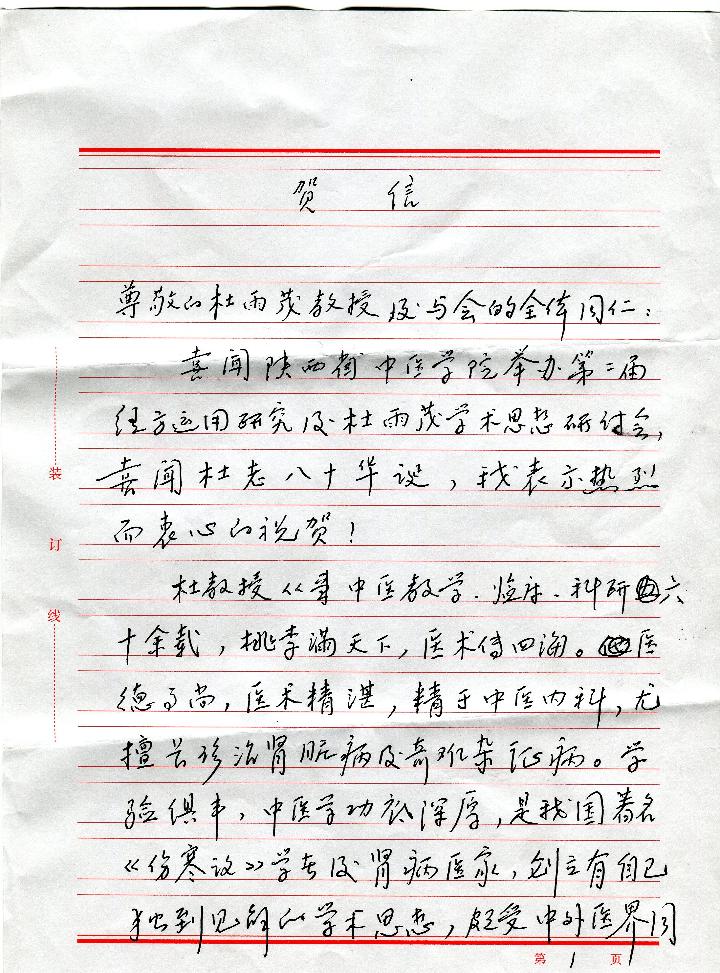 贺 信
尊敬的杜雨茂教授及与会的全体同仁：
喜闻陕西省中医学院举办第二届
经方运用研究及杜雨茂学术思想研讨会，
喜闻杜老八十华诞，我表示热烈
而衷心的祝贺！
杜教授从事中医教学、临床、科研六
十余载，桃李满天下，医术传四海。医
德高尚，医术精湛，精于中医内科，尤
擅长诊治肾脏病及奇难杂症病。学
验俱丰，中医学功底深厚，是我国著名
《伤寒论》学专及肾病医家，创立有自己
独到见解的学术思想，颇受中外医界同
装
订
线
第 1 页